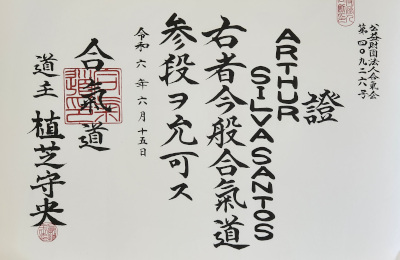 公益財団法人合氣会
第四〇九二八号
證
ARTHUR
SILVA SANTOS
右者今般合氣道
参段ヲ允可ス
令和六年六月十五日
合氣道
道主 植芝守央